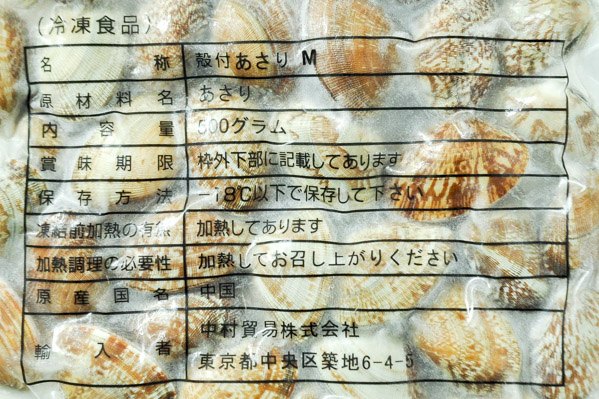 (冷凍食品)
名称 殻付あさり M
原材料名 あさり
内容量 500グラム
賞味期限 枠外下部に記載してあります
保存方法 −18℃以下で保存して下さい
凍結前加熱の有無 加熱してあります
加熱調理の必要性 加熱してお召し上がりください
原産国名 中国
輸入者 中村貿易株式会社
東京都中央区築地6-4-5